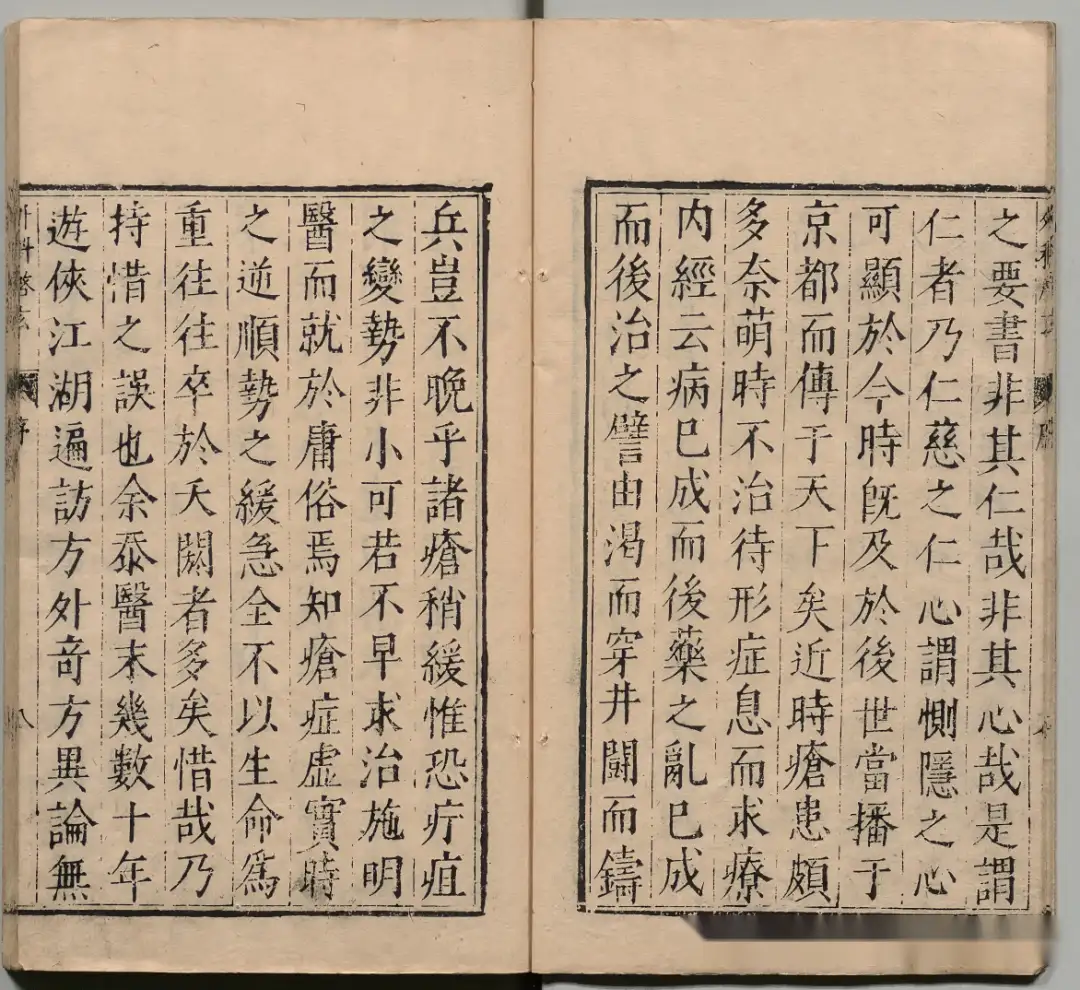 之要書非其仁哉非其心哉是謂
仁者乃仁慈之仁心謂惻隱之心
可顯於今時旣及於後世當播于
京都而傳于天下矣近時瘡患頗
多奈萌時不治待形症息而求療
内經云病已成而後藥之亂已成
而後治之譬由渴而穿井鬪而鑄
兵豈不晚乎諸瘡稍緩惟恐疔疽
之變勢非小可若不早求治施明
醫而就於庸俗焉知瘡症虛實時
之逆順勢之緩急全不以生命爲
重往往卒於夭閼者多矣惜哉乃
持惜之誤也余忝醫末幾數十年
遊俠江湖遍訪方外竒方異論無
序
八